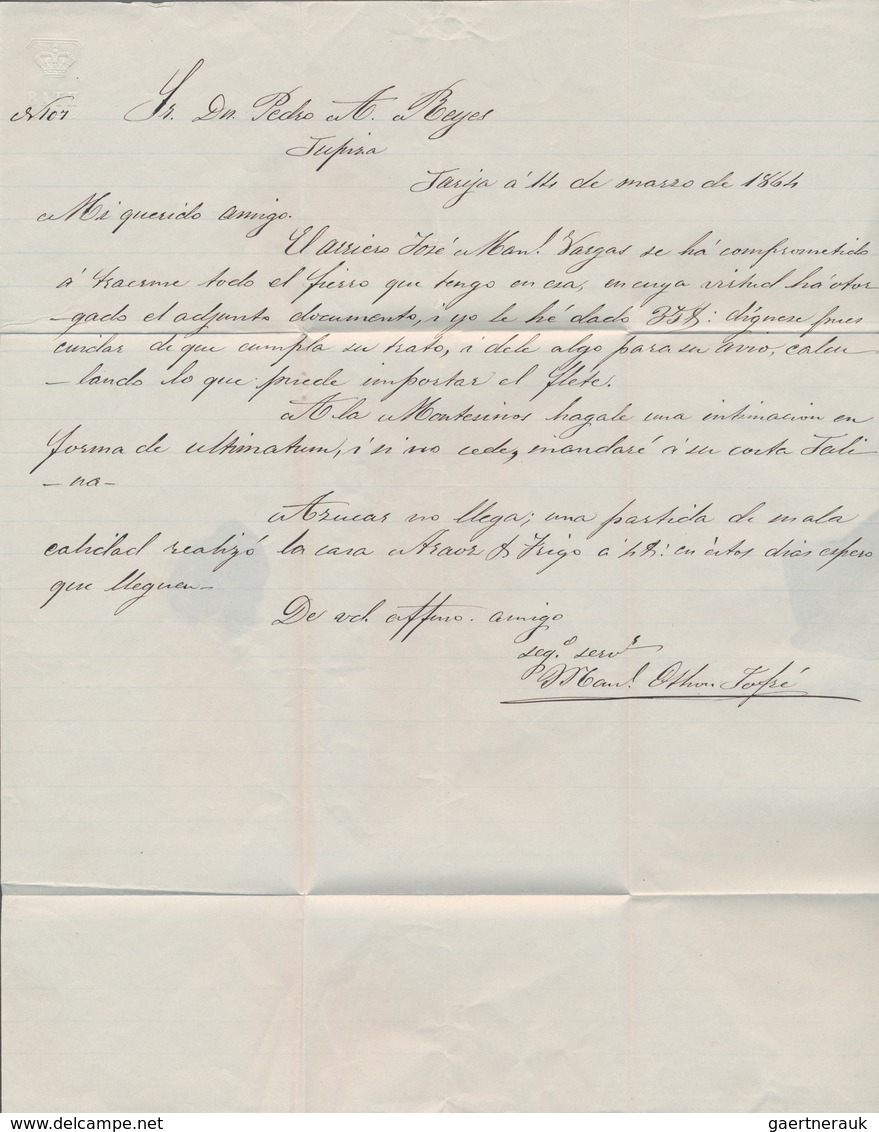 BATH
Sr. Dn. Pedro A. Reyes
Tupiza
Tarija á 14 de marzo de 1864
Mi querido amigo.
El arriero José Manl. Vargas se há comprometido
á traerme todo el fierro que tengo en esa, en cuya virtud há otor
-gado el adjunto documento, i yo le hé dado 35$: dígnese pues
cuidar de que cumpla su trato, i dele algo para su avio, calcu
-lando lo que puede importar el flete.
A la Montesinos hagale una intimacion en
forma de ultimatum, i si no cede, mandaré á su costa Tali-
-na-
Azucar no llega; una partida de mala
calidad realizó la casa Araoz & Trigo á 4$: en éstos dias espero
que lleguen-
De vd. affmo. amigo
segº. servr.
Manl. Othon Jofré
delcampe.net
gaertnerauk